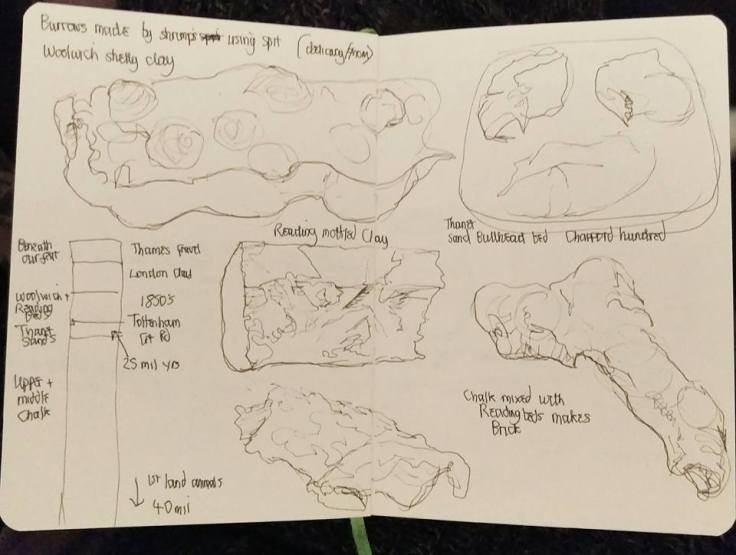 Burrows made by shrimps using spit
Woolwich shelly clay
Reading mottled Clay
Thanet
sand Bullhead bed Chafford hundred
Beneath
our feet
Thames gravel
London Clay
Woolwich +
Reading
Beds
1850's
Thanet
Sands
Tottenham
Ct Rd
25 mil yrs
Upper +
middle
Chalk
1st land animals
40 mil
Chalk mixed with
Reading beds makes
Brick